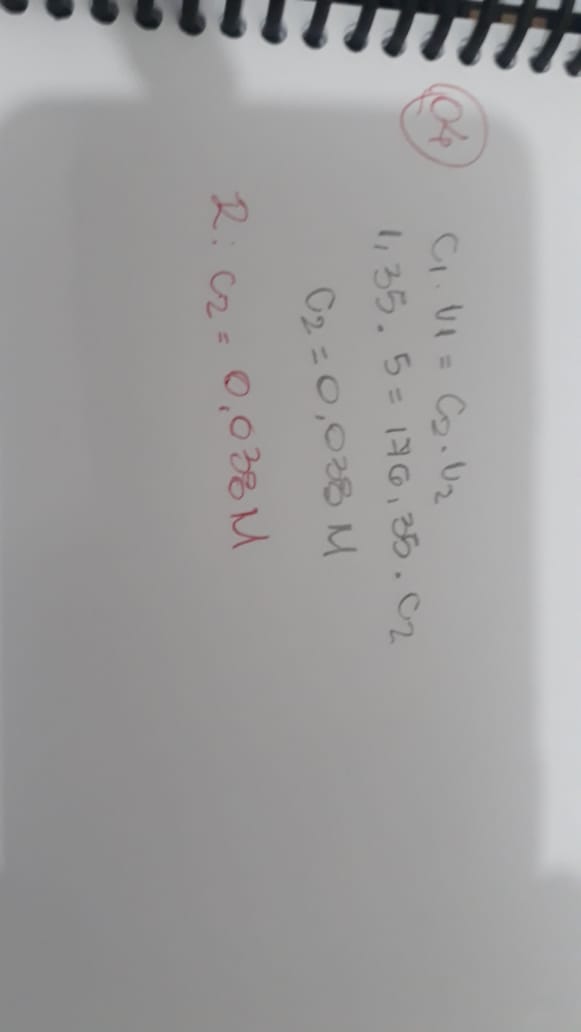 04
C1. V1 = C2. V2
1,35. 5 = 176,35. C2
C2 = 0,038 M
R: C2 = 0,038 M